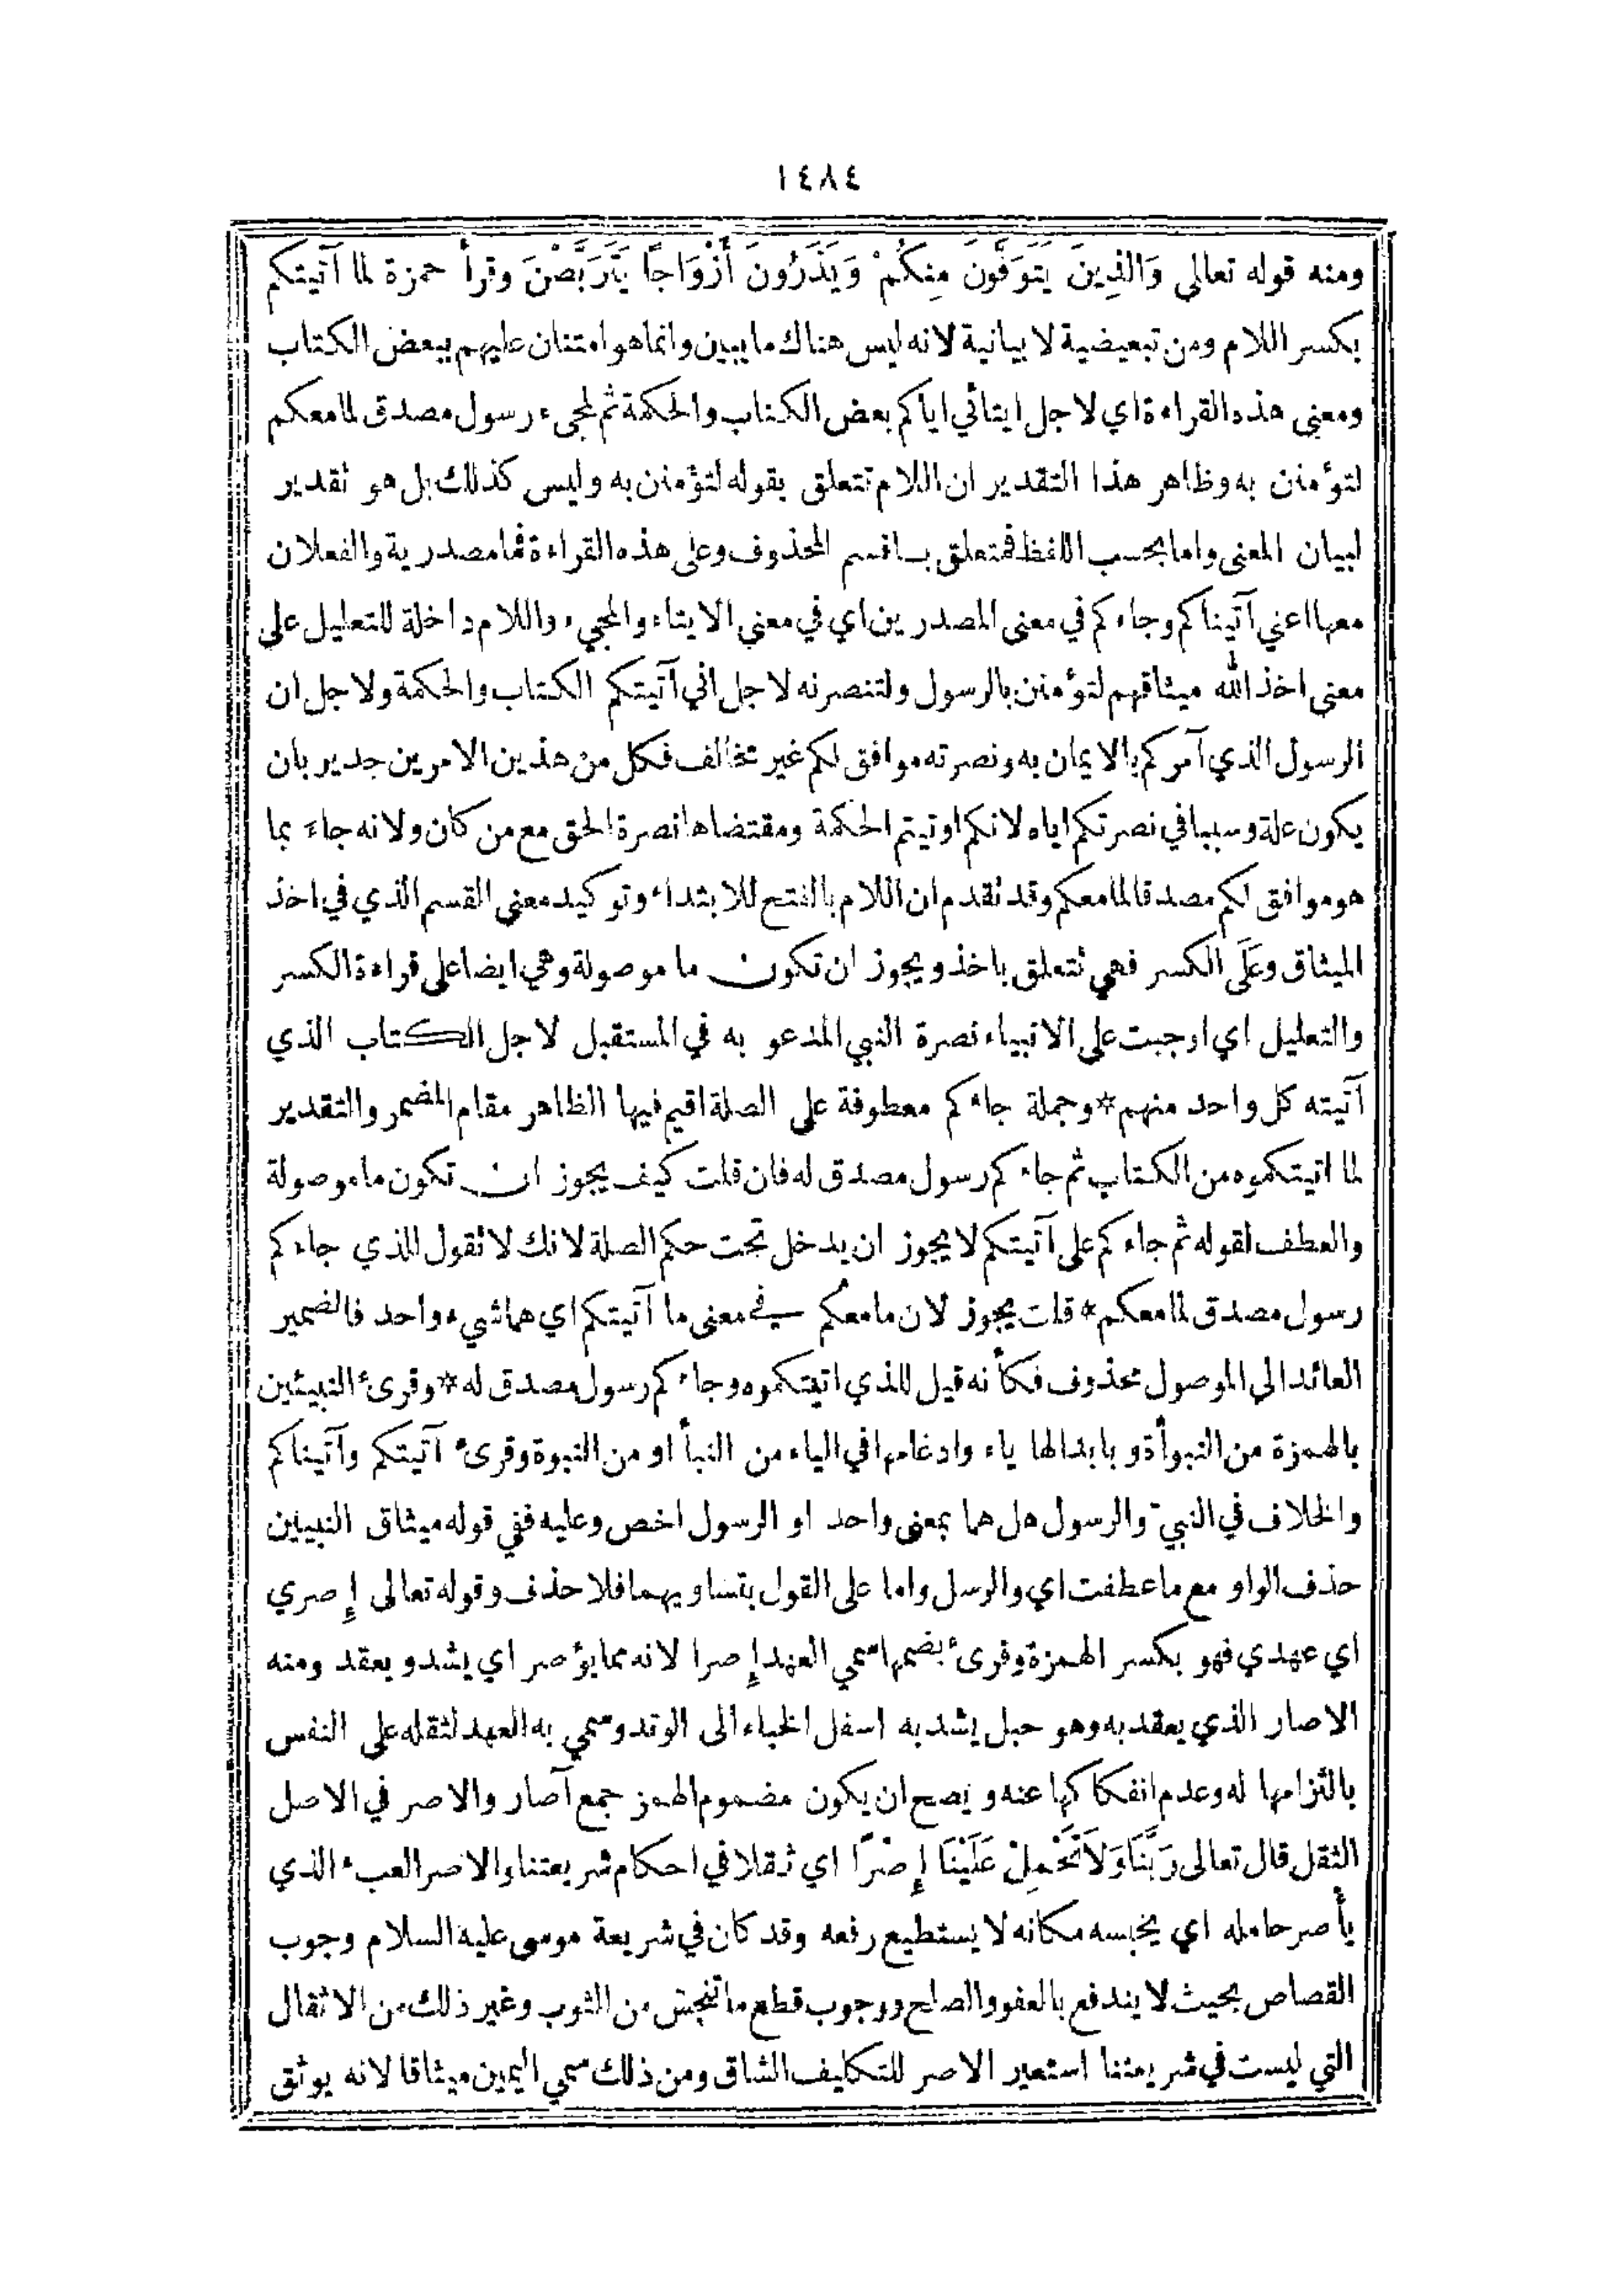 ١٤٨٤
ومنه قوله تعالى وَالَّذِينَ يُتَوَفَّوْنَ مِنكُمْ وَيَذَرُونَ أَزْوَاجًا يَتَرَبَّصْنَ وقرأ حمزة لما آتيتكم
بكسر اللام ومن تبعيضية لا بيانية لانه ليس هناك ما يبين وانما هو امتنان عليهم ببعض الكتاب
ومعنى هذه القراءة اي لاجل ايتائي اياكم بعض الكتاب والحكمة ثم لمجيء رسول مصدق لما معكم
لتؤمنن به وظاهر هذا التقدير ان اللام تتعلق بقوله لتؤمنن به وليس كذلك بل هو تقدير
لبيان المعنى واما بحسب اللفظ فمتعلق باقسم المحذوف وعلى هذه القراءة فما مصدرية والفعلان
معها اعني آتيناكم وجاءكم في معنى المصدرين اي في معنى الايتاء والمجيء واللام داخلة للتعليل على
معنى اخذ الله ميثاقهم لتؤمنن بالرسول ولتنصرنه لاجل اني آتيتكم الكتاب والحكمة ولاجل ان
الرسول الذي آمركم بالايمان به ونصرته موافق لكم غير مخالف فكل من هذين الامرين جدير بان
يكون علة وسببا في نصرتكم اياه لانكم اوتيتم الحكمة ومقتضاها نصرة الحق مع من كان ولانه جاءَ بما
هو موافق لكم مصدقا لما معكم وقد تقدم ان اللام بالفتح للابتداء وتوكيد معنى القسم الذي في اخذ
الميثاق وعَلَى الكسر فهي تتعلق باخذ ويجوز ان تكون ما موصولة وهي ايضا على قراءة الكسر
والتعليل اي اوجبت على الانبياء نصرة النبي المدعو به في المستقبل لاجل الكتاب الذي
آتيته كل واحد منهم * وجملة جاءكم معطوفة على الصلة اقيم فيها الظاهر مقام المضمر والتقدير
لما اتيتكموه من الكتاب ثم جاءكم رسول مصدق له فان قلت كيف يجوز ان تكون ما موصولة
والعطف لقوله ثم جاءكم على آتيتكم لا يجوز ان يدخل تحت حكم الصلة لانك لا تقول للذي جاءكم
رسول مصدق لما معكم * قلت يجوز لان ما معكم في معنى ما آتيتكم اي هما شيء واحد فالضمير
العائد الى الموصول محذوف فكأنه قيل للذي اتيتكموه وجاءكم رسول مصدق له * وقرئ النبيئين
بالهمزة من النبوأة و بابدالها ياء وادغامها في الياء من النبأ او من النبوة وقرئ آتيتكم وآتيناكم
والخلاف في النبي والرسول هل هما بمعنى واحد او الرسول اخص وعليه ففي قوله ميثاق النبيين
حذف الواو مع ما عطفت اي والرسل واما على القول بتساويهما فلا حذف وقوله تعالى إصري
اي عهدي فهو بكسر الهمزة وقرئ بضمها سمي العهد إصرا لانه مما يؤصر اي يشد ويعقد ومنه
الاصار الذي يعقد به وهو حبل يشد به اسفل الخباء الى الوتد وسمي به العهد لثقله على النفس
بالتزامها له وعدم انفكاكها عنه ويصح ان يكون مضموم الهمز جمع آصار والاصر في الاصل
الثقل قال تعالى رَبَّنَا وَلاَ تَحْمِلْ عَلَيْنَا إِصْرًا اي ثقلا في احكام شريعتنا والاصر العبء الذي
يأصر حامله اي يحبسه مكانه لا يستطيع رفعه وقد كان في شريعة موسى عليه السلام وجوب
القصاص بحيث لا يندفع بالعفو والصلح ووجوب قطع ما تنجس من الثوب وغير ذلك من الاثقال
التي ليست في شريعتنا استعير الاصر للتكليف الشاق ومن ذلك سمي اليمين ميثاقا لانه يوثق